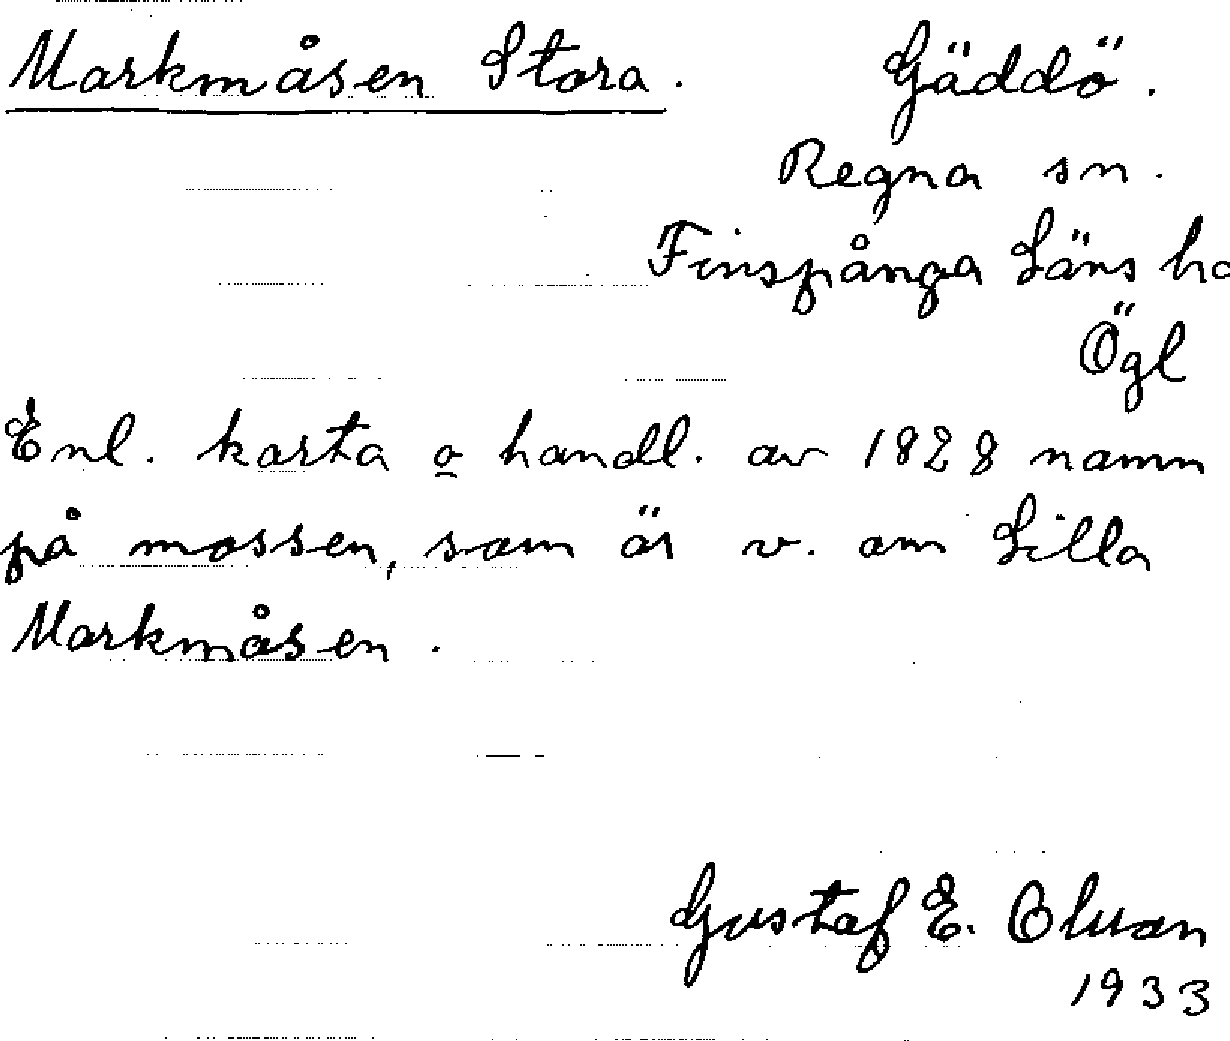 Markmåsen Stora. Gäddö.
Regna sn.
Finspånga Läns
Ögl
Enl. karta o handl. av 1828 namn
på mossen, som är v. om Lilla
Markmåsen.
Gustaf E.
1933